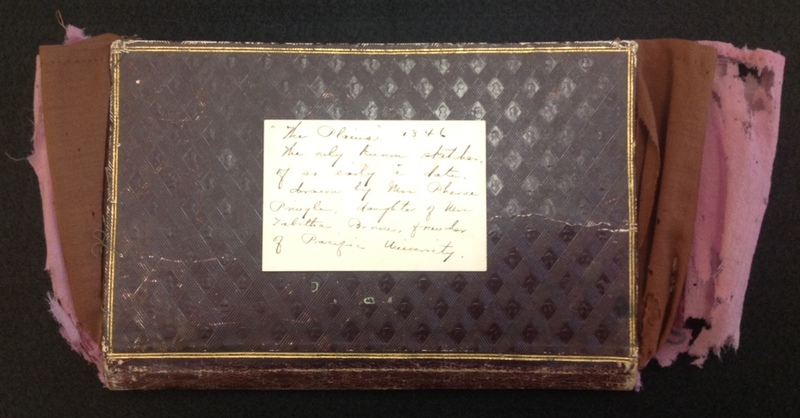 "The Plains" 1846
The only known sketches
of so early a date.
drawn by Mrs Pherne
Pringle, daughter of Mrs
Tabitha Brown, founder
of Pacific University.